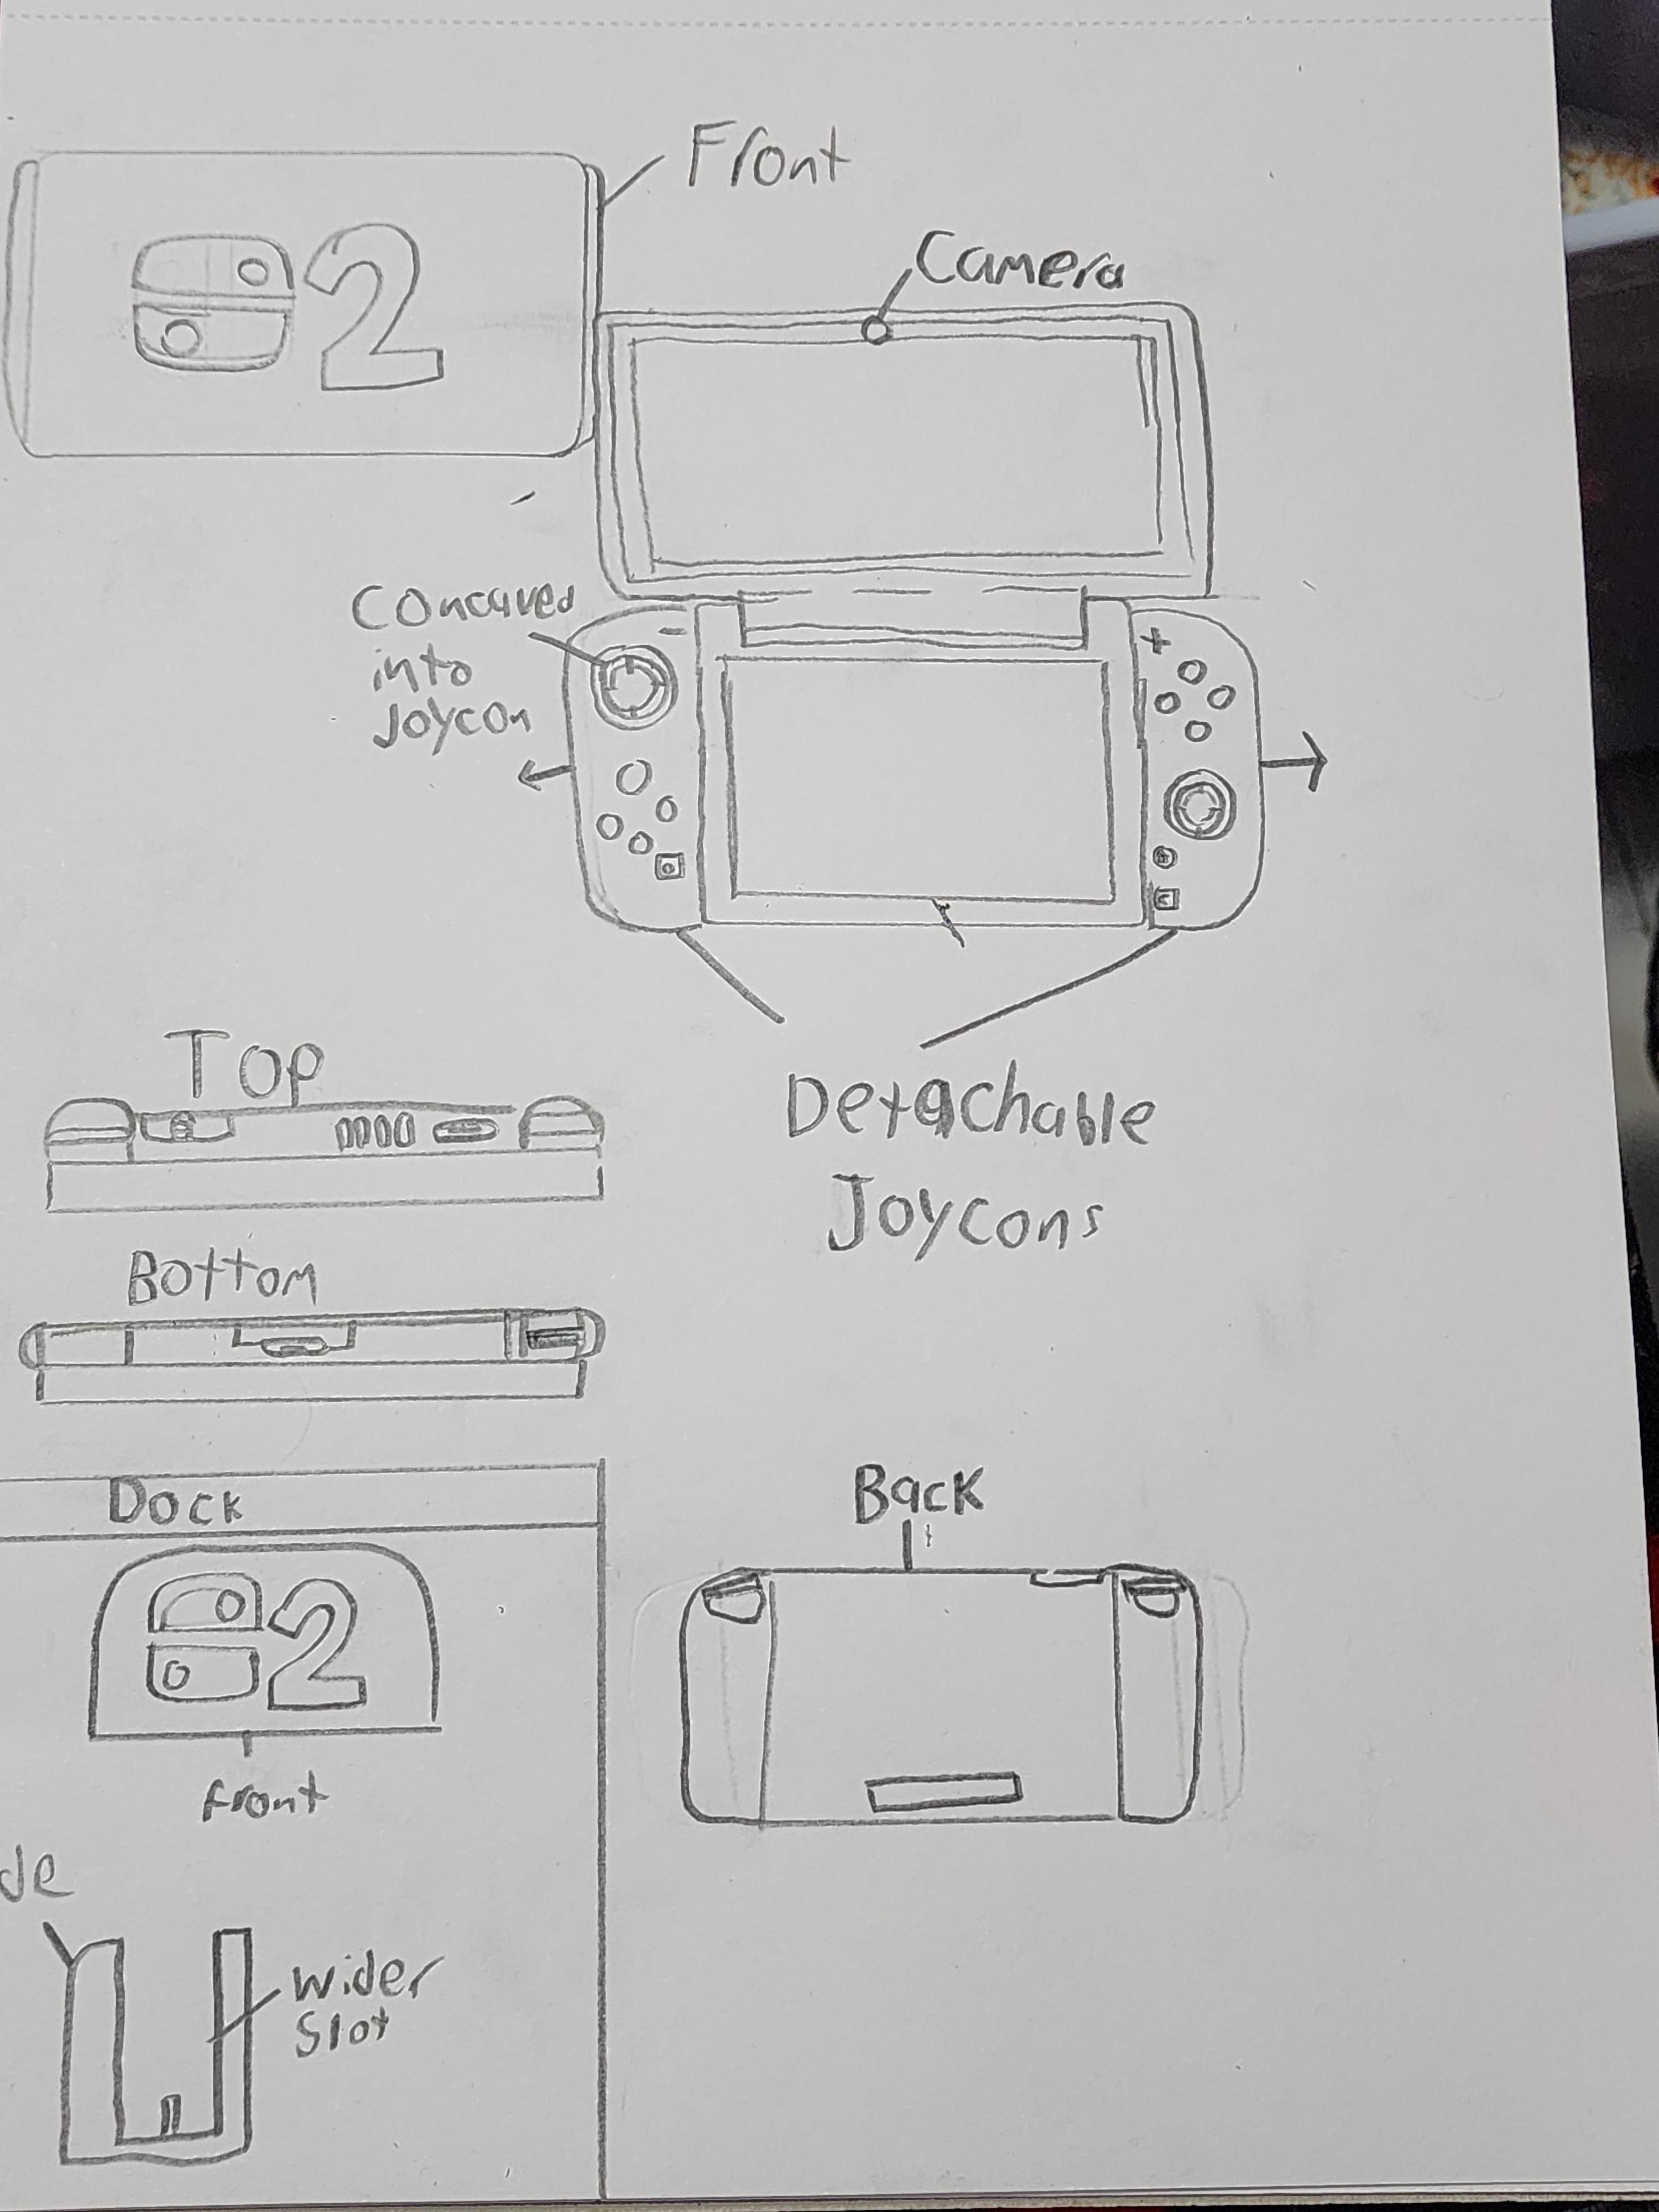 Front
2
Camera
Concaved
into
Joycon
- +
Detachable
Joycons
Top
Bottom
Dock
2
front
Back
de
wider
slot